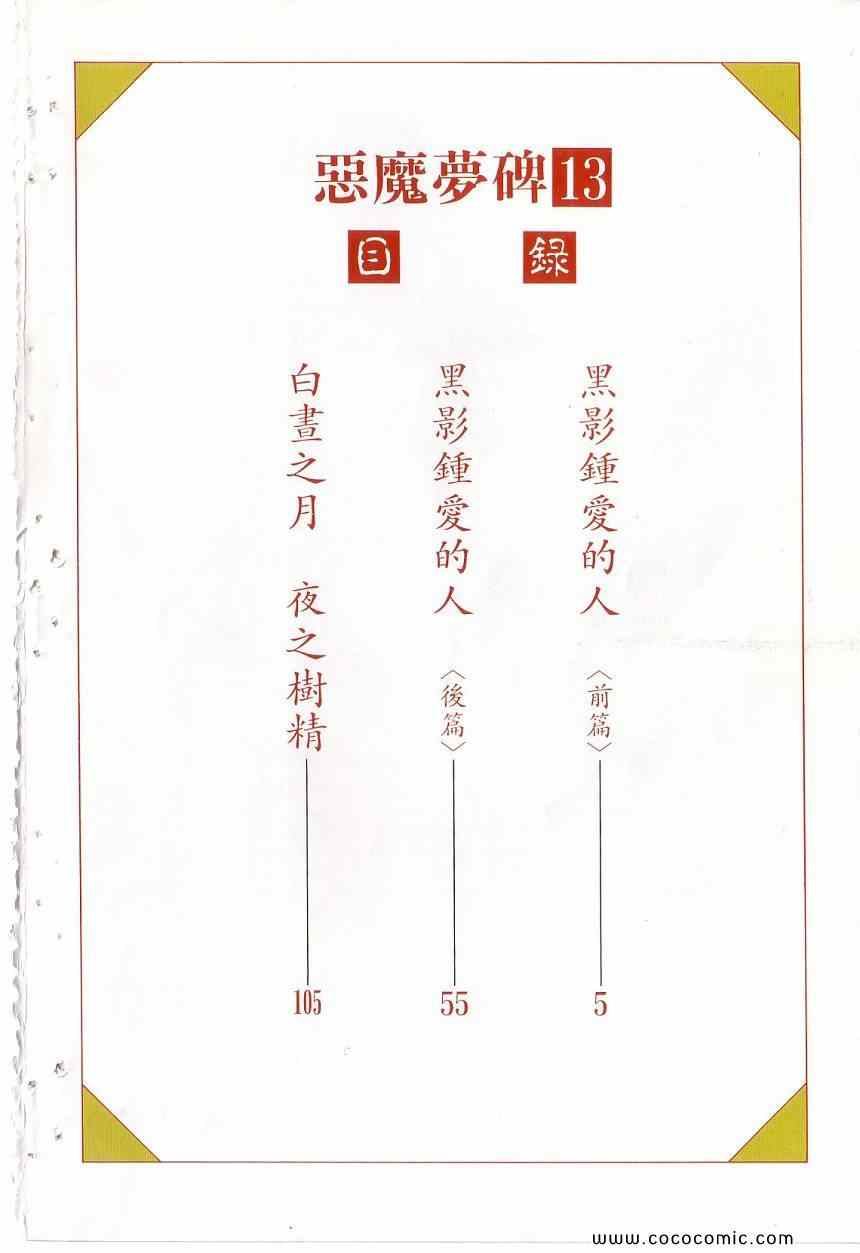 惡魔夢碑13
目錄
黑影鍾愛的人〈前篇〉 5
黑影鍾愛的人〈後篇〉 55
白晝之月　夜之樹精 105
www.cococomic.com